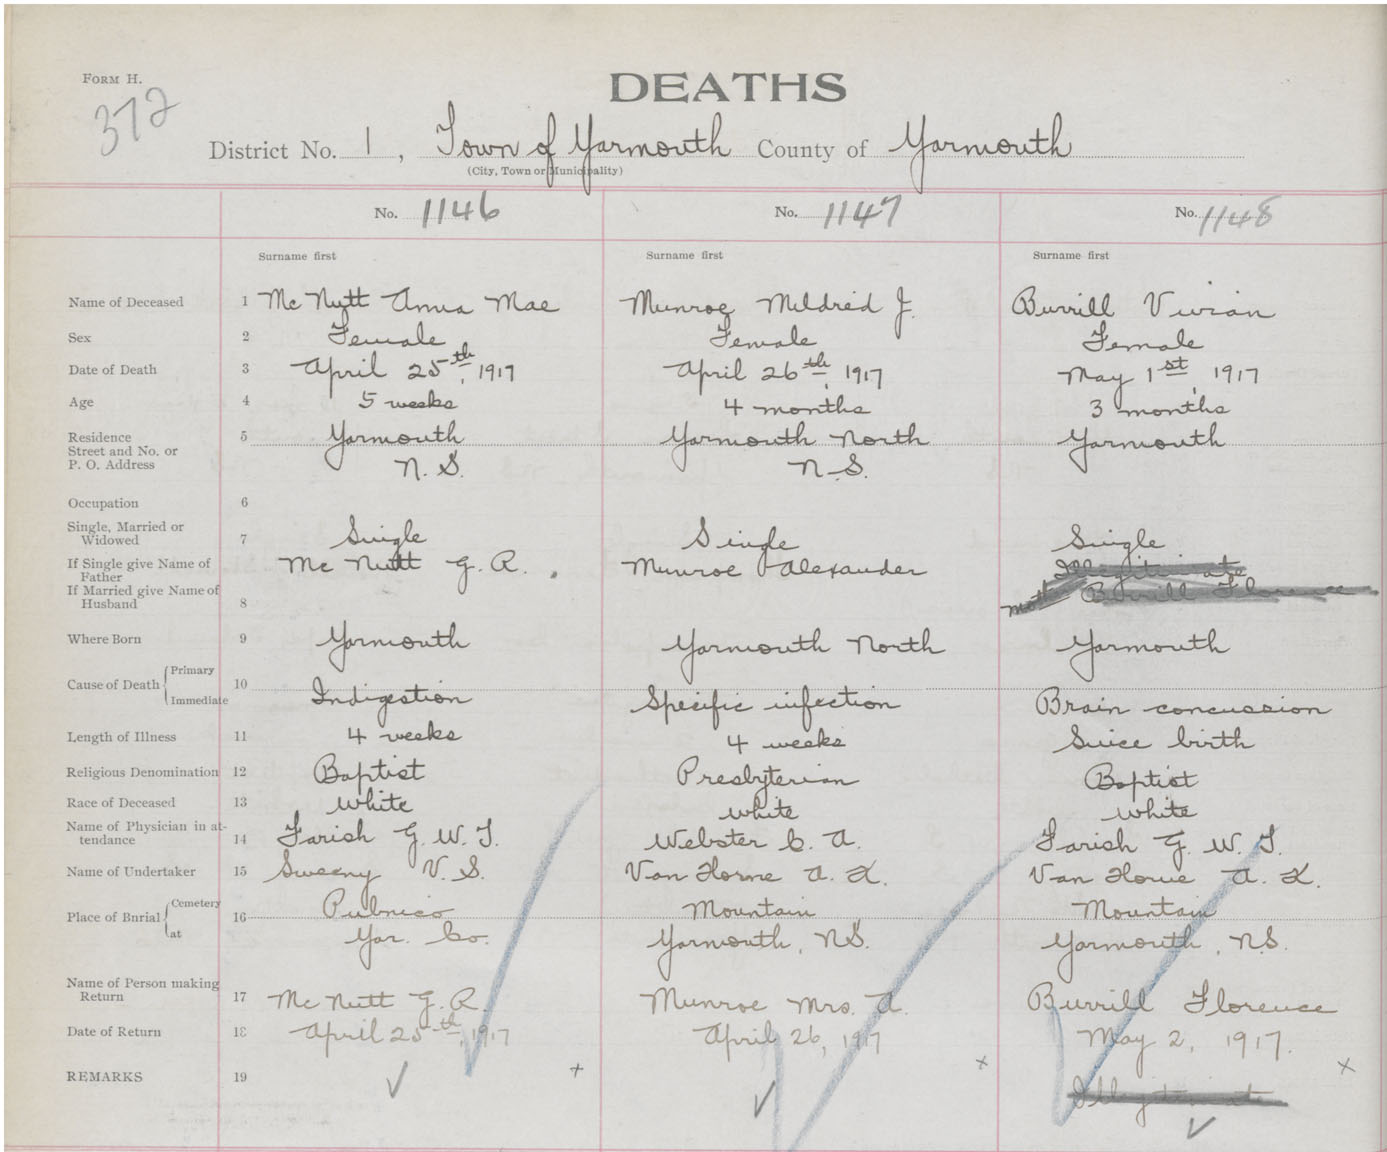 FORM H.
DEATHS
372
District No. 1, Town of Yarmouth County of Yarmouth
(City, Town or Municipality)
No. 1146 No. 1147 No. 1148
Surname first Surname first Surname first
Name of Deceased 1 Mc Nutt Anna Mae Munroe Mildred J. Burrill Vivian
Sex 2 Female Female Female
Date of Death 3 April 25th, 1917 April 26th, 1917 May 1st, 1917
Age 4 5 weeks 4 months 3 months
Residence 5 Yarmouth Yarmouth North Yarmouth
Street and No. or
P. O. Address N. S. N. S.
Occupation 6
Single, Married or
Widowed 7 Single Single Single
If Single give Name of
Father Mc Nutt G. R. Munroe Alexander Illigitimate
If Married give Name of
Husband 8 Burrill Florence
Where Born 9 Yarmouth Yarmouth North Yarmouth
Cause of Death Primary
10
Immediate Indigestion Specific infection Brain concussion
Length of Illness 11 4 weeks 4 weeks Suice birth
Religious Denomination 12 Baptist Presbyterian Baptist
Race of Deceased 13 White White White
Name of Physician in at-
tendance 14 Farish G. W. T. Webster C. A. Farish G. W. T.
Name of Undertaker 15 Sweeny V. S. Van Horne A. K. Van Horne A. K.
Place of Burial Cemetery 16 Pubnico Mountain Mountain
at Yar. Co. Yarmouth, N.S. Yarmouth, N.S.
Name of Person making
Return 17 Mc Nutt G. R. Munroe Mrs. A. Burrill Florence
Date of Return 18 April 25th, 1917 April 26, 1917 May 2, 1917.
REMARKS 19